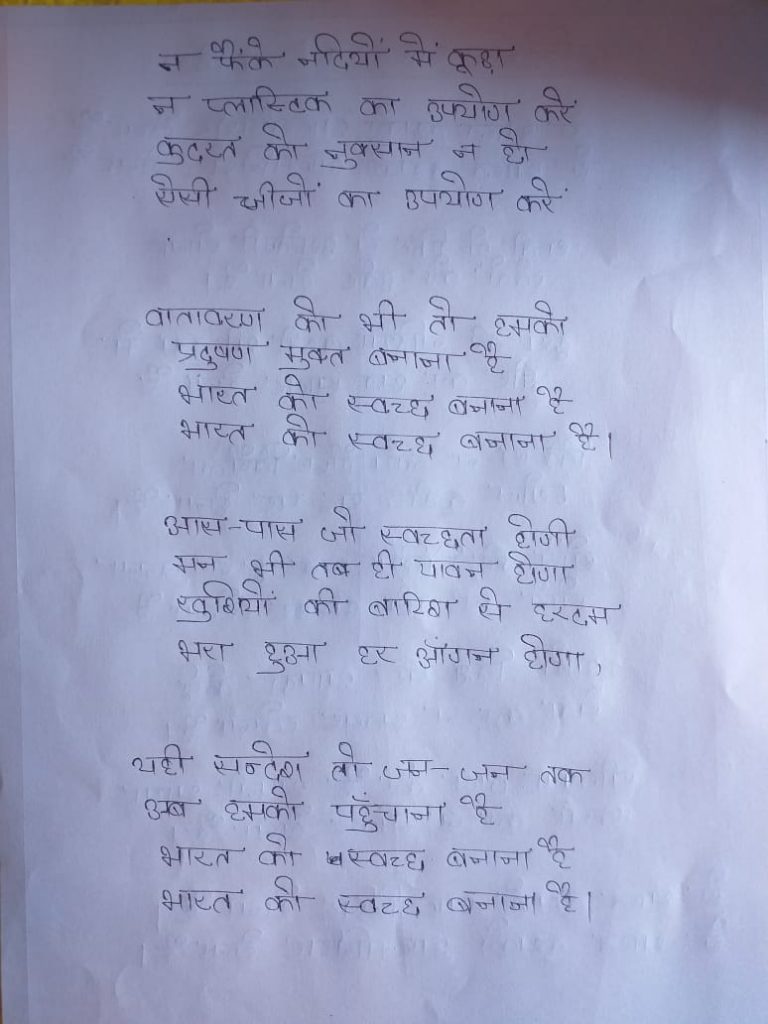 न फैंके नदियों में कूड़ा
न प्लास्टिक का उपयोग करें
कुदरत को नुक्सान न हो
ऐसी चीजों का उपयोग करें
वातावरण को भी तो हमको
प्रदुषण मुक्त बनाना है
भारत को स्वच्छ बनाना है
भारत को स्वच्छ बनाना है।
आस-पास जो स्वच्छता होगी
मन भी तब ही पावन होगा
खुशियों की बारिश से हरदम
भरा हुआ हर आँगन होगा,
यही सन्देश तो जन-जन तक
अब हमको पहुँचाना है
भारत को स्वच्छ बनाना है
भारत को स्वच्छ बनाना है।